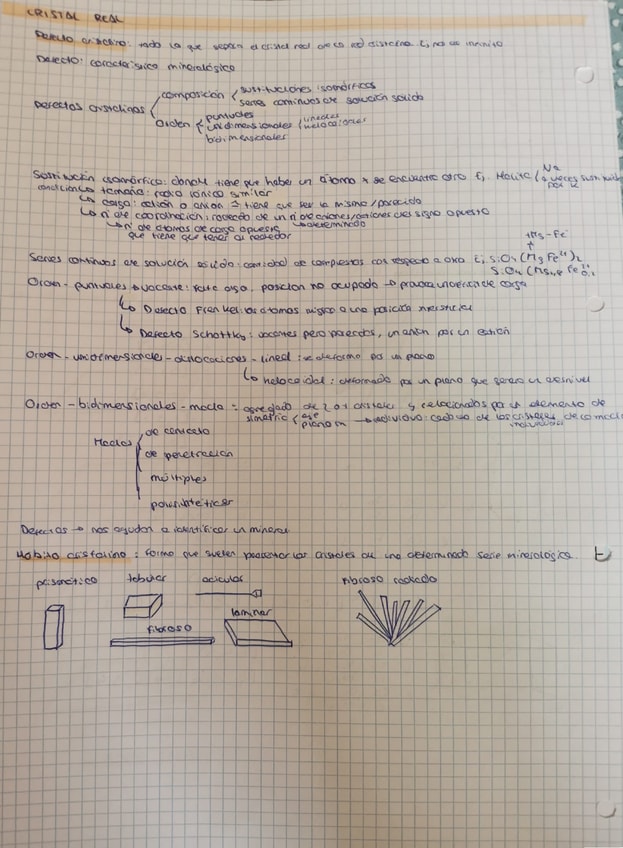 CRISTAL REAL
Defecto cristalino: todo lo que separa el cristal real de la red cristalina. Ej, no es infinito
Defecto: característica mineralógica
Defectos cristalinos
composición
sustituciones isomórficas
series continuas de solución sólida
Orden
puntuales
unidimensionales
lineales
helocoidales
bidimensionales
Sustitución isomórfica: donde tiene que haber un átomo x se encuentra otro Ej, Halita
Na
a veces sustituido por K
condición
tamaño: radio iónico similar
carga: catión o anión tiene que ser la misma/parecida
nº de coordinación: rodeado de un nº de aniones/cationes del signo opuesto
nº de atomos de carga opuesta
que tiene que tener al rededor
determinado
Series continuas de solución sólida: cantidad de compuestos con respecto a otro Ej, SiO4 (Mg Fe2+)2
Orden - puntuales vacante: falta algo, posición no ocupada → provoca un exceso de carga
Defecto Frenkel: los átomos migran a una posición intersticial
Defecto Schottky: vacantes pero parecidas, un anión por un catión
Orden - unidimensionales - dislocaciones - lineal: se deforma por un plano
helocoidal: deformado por un plano que genera un desnivel
Orden - bidimensionales - macla = agregado de 2 o + cristales y relacionados por un elemento de
simetría
eje
plano
→ individuo: cada uno de los cristales de la macla
individual
Maclas
de contacto
de penetración
múltiples
polisintéticas
Defectos → nos ayudan a identificar un mineral
Hábito cristalino: forma que suelen presentar los cristales de una determinada serie mineralógica.
prismático
tabular
acicular
fibroso radiado
fibroso
laminar